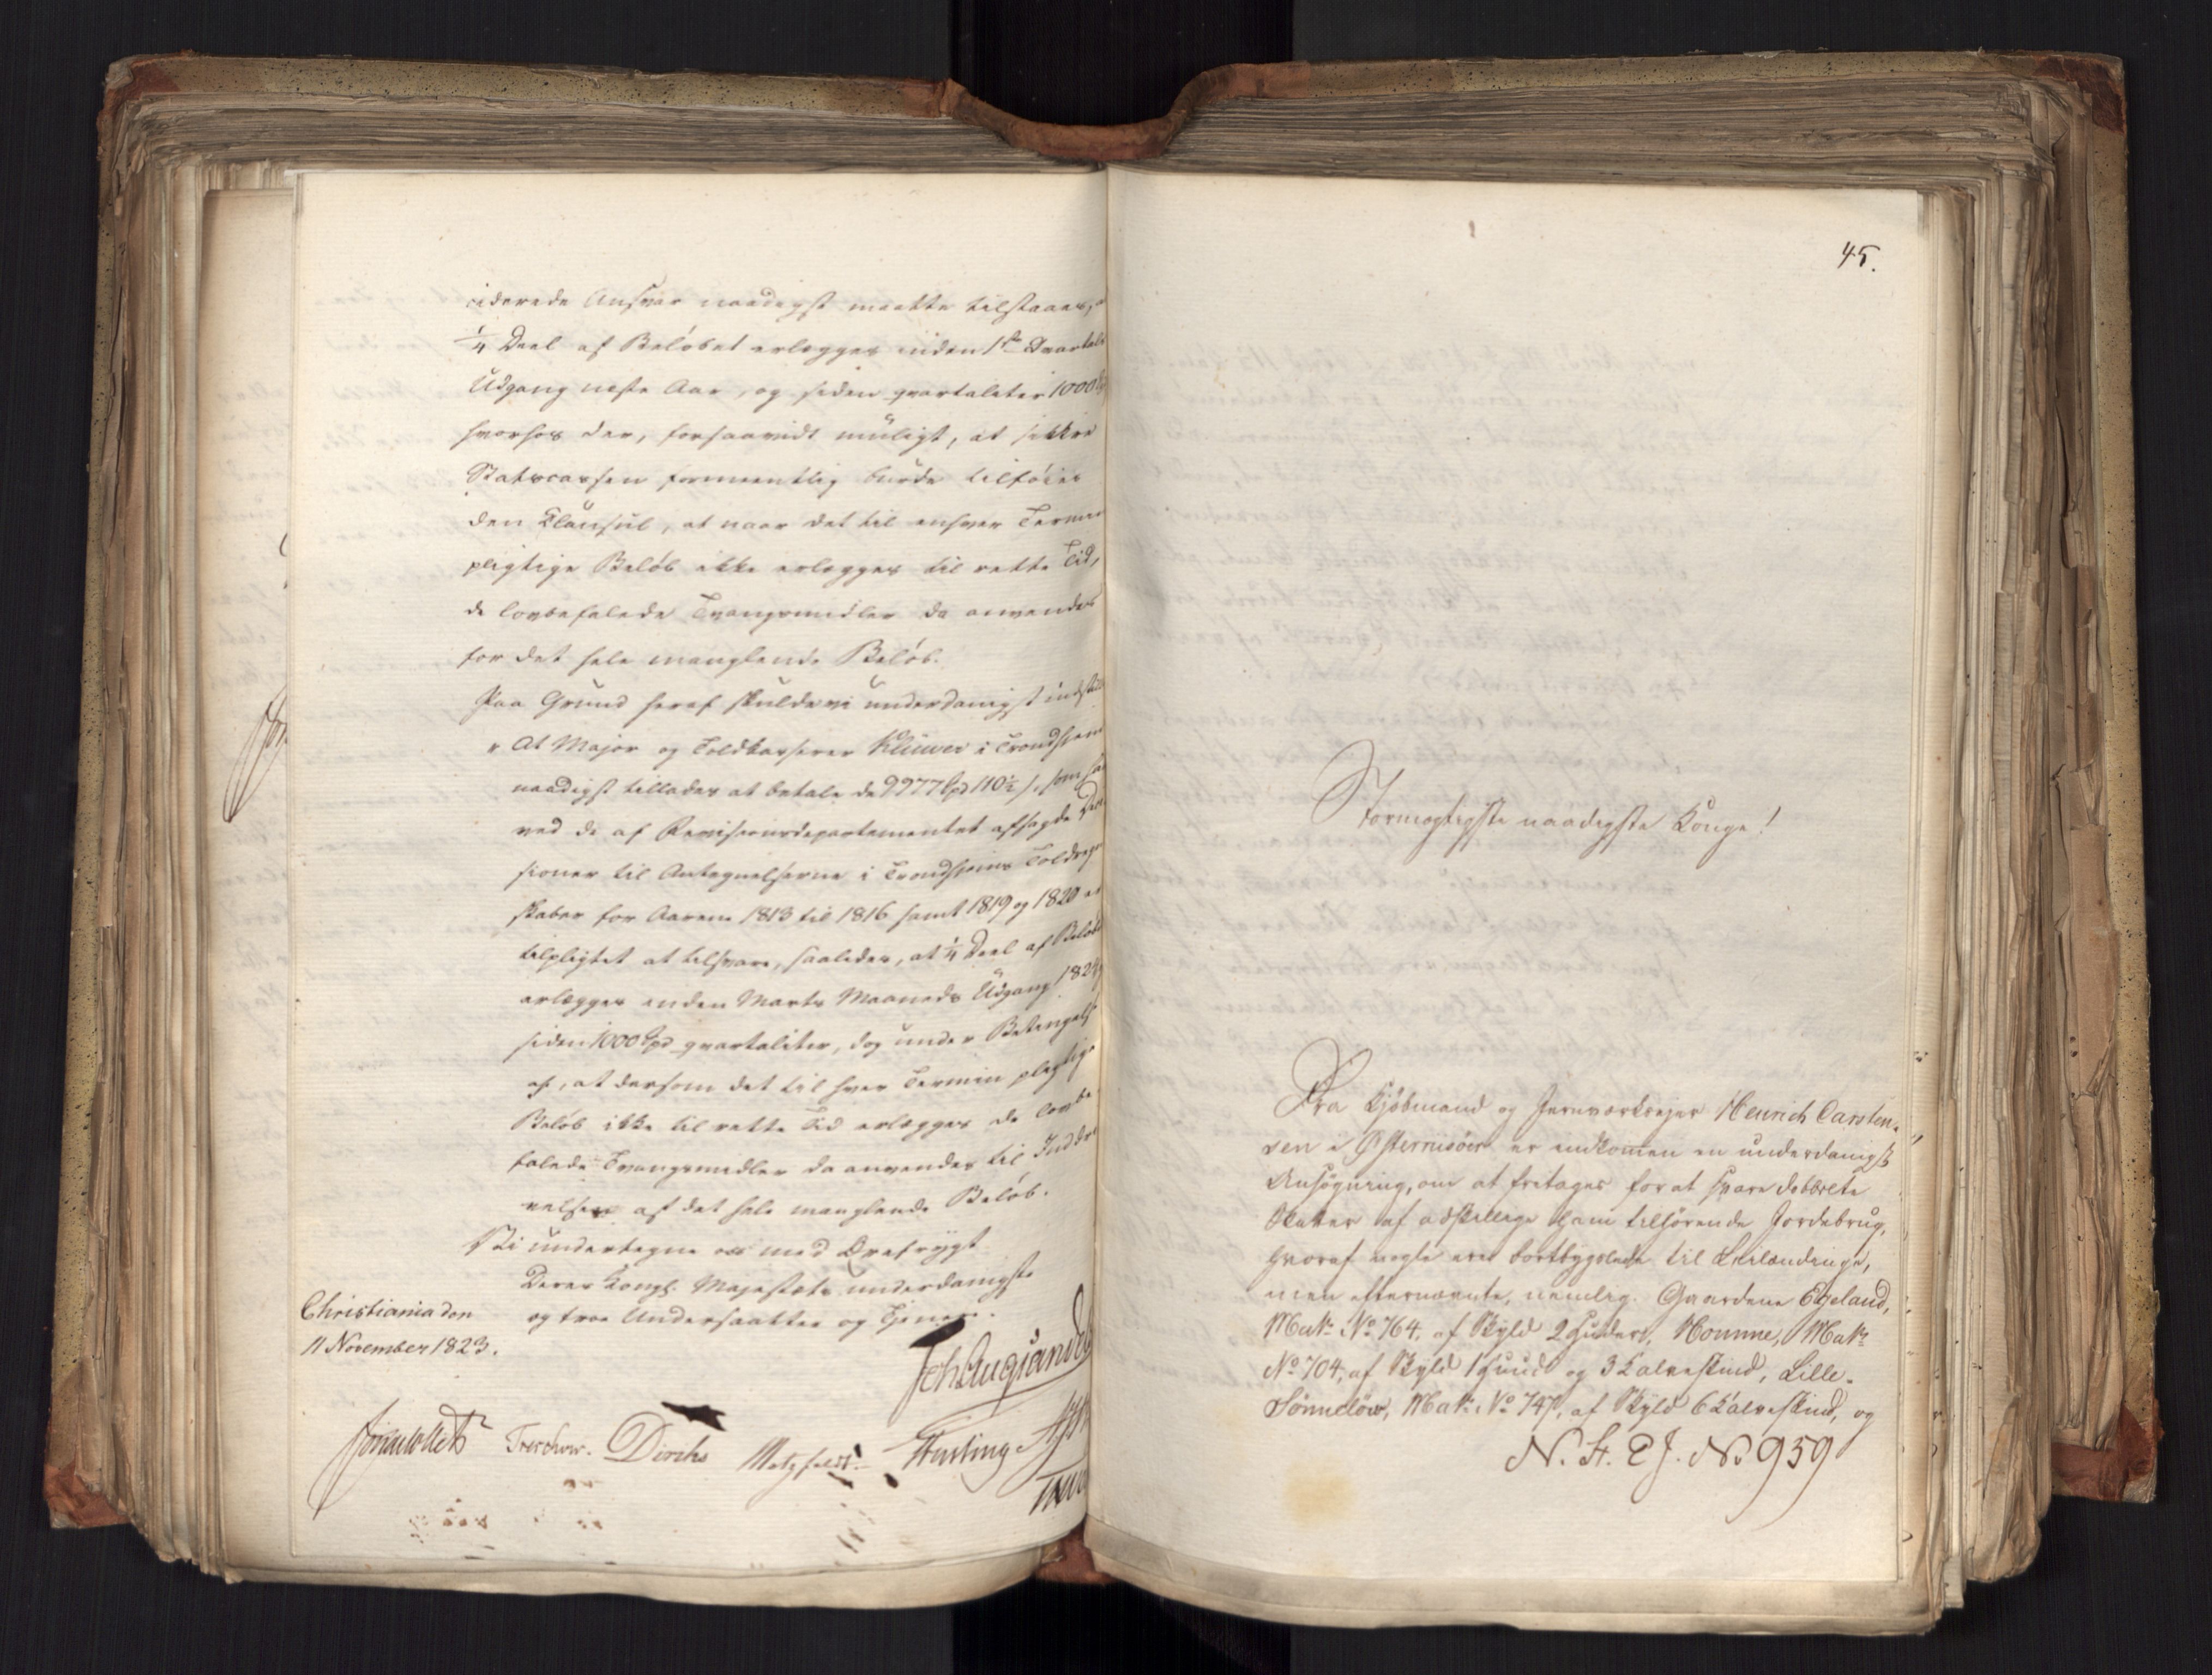 iderede Ansvar naadigst maatte tilstaaes,
¼ Deel af Beløbet erlægges inden 1ste Qvartals
Udgang næste Aar, og siden qvartaliter 1000
hvorhos der, forsaavidt muligt, at sikkre
Statscassen formeentlig burde tilføies
den Clausul, at naar det til enhver Termin
pligtige Beløb ikke erlægges til rette Tid,
de lovbefalede Tvangsmidler da anvendes
for det hele manglende Beløb.
Paa Grund heraf skulde vi underdanigst indstille
"At Major og Toldkasserer Klüwer i Trondhjem
naadigst tillades at betale de 9977 Spd 110½ s, som
ved de af Revisionsdepartementet afsagde Deci
sioner til Antegnelserne i Trondhjems Toldregn
skaber for Aarene 1813 til 1816 samt 1819 og 1820 er
tilpligtet at tilsvare, saaledes, at ¼ Deel af Beløbet
erlægges inden Marts Maaneds Udgang 1824,
siden 1000 Spd qvartaliter, dog under Betingelse
af, at dersom det til hver Termin pligtige
Beløb ikke til rette Tid erlægges de lovbe
falede Tvangsmidler da anvendes til Inddri
velsen af det hele manglende Beløb.
Vi undertegne os med Ærefrygt
Deres Kongl. Majestæts underdanigste
og troe Undersaatter og Tjenere.
Christiania den
11 November 1823.
Joh. Aug. Sandels
Treschow. Diriks Motzfeldt.
45.
Stormægtigste naadigste Konge!
Fra Kjøbmand og Jernværkseier Henrich Carsten-
sen i Østerrisøer er indkommen en underdanigst
Ansøgning, om at fritages for at svare dobbelte
Skatter af adskillige ham tilhørende Jordebrug,
hvoraf nogle ere bortbygslede til Leilændinge,
men efternævnte, nemlig Gaardene Egeland,
Matr. No 764, af Skyld 2 Huder, Homme, Matr.
No 704, af Skyld 1 Huud og 3 Kalveskind, Lille-
Sønneløw, Matr. No 747, af Skyld 6 Kalveskind, og
N. St. E J. No 959